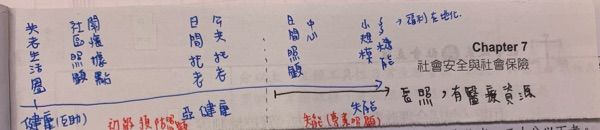 生活圈
社區照顧
關懷據點
日間托老
托老
日間照顧
中心
小規模
多機能
福利在地化
Chapter 7
社會安全與社會保險
健康(互助)
預防
亞健康
失能(專業照顧)
失能
長照，有醫療資源